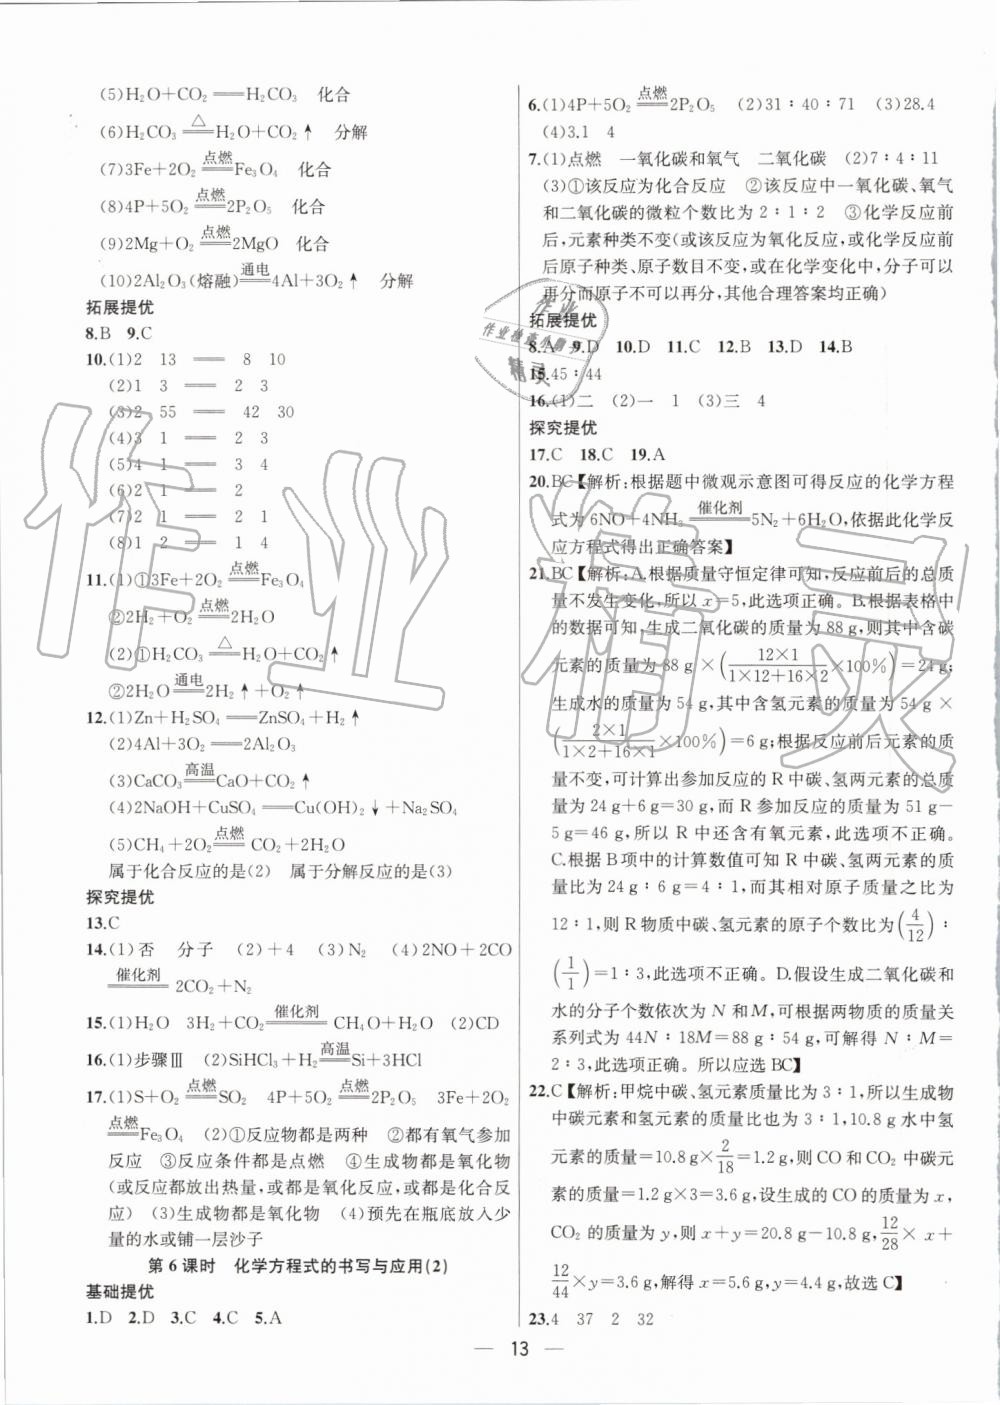 (5)H₂O+CO₂══H₂CO₃ 化合
(6)H₂CO₃ △══ H₂O+CO₂↑ 分解
(7)3Fe+2O₂ 点燃══ Fe₃O₄ 化合
(8)4P+5O₂ 点燃══ 2P₂O₅ 化合
(9)2Mg+O₂ 点燃══ 2MgO 化合
(10)2Al₂O₃(熔融) 通电══ 4Al+3O₂↑ 分解
拓展提优
8.B 9.C
10.(1)2 13 ══ 8 10
(2)1 3 ══ 2 3
(3)2 55 ══ 42 30
(4)3 1 ══ 2 3
(5)4 1 ══ 3 4
(6)2 1 ══ 2
(7)2 1 ══ 2 1
(8)1 2 ══ 1 4
11.(1)①3Fe+2O₂ 点燃══ Fe₃O₄
②2H₂+O₂ 点燃══ 2H₂O
(2)①H₂CO₃ △══ H₂O+CO₂↑
②2H₂O 通电══ 2H₂↑+O₂↑
12.(1)Zn+H₂SO₄══ZnSO₄+H₂↑
(2)4Al+3O₂══2Al₂O₃
(3)CaCO₃ 高温══ CaO+CO₂↑
(4)2NaOH+CuSO₄══Cu(OH)₂↓+Na₂SO₄
(5)CH₄+2O₂ 点燃══ CO₂+2H₂O
属于化合反应的是(2) 属于分解反应的是(3)
探究提优
13.C
14.(1)否 分子 (2)+4 (3)N₂ (4)2NO+2CO
催化剂══ 2CO₂+N₂
15.(1)H₂O 3H₂+CO₂ 催化剂══ CH₄O+H₂O (2)CD
16.(1)步骤Ⅲ (2)SiHCl₃+H₂ 高温══ Si+3HCl
17.(1)S+O₂ 点燃══ SO₂ 4P+5O₂ 点燃══ 2P₂O₅ 3Fe+2O₂
点燃══ Fe₃O₄ (2)①反应物都是两种 ②都有氧气参加
反应 ③反应条件都是点燃 ④生成物都是氧化物
(或反应都放出热量,或都是氧化反应,或都是化合反
应) (3)生成物都是氧化物 (4)预先在瓶底放入少
量的水或铺一层沙子
第6课时 化学方程式的书写与应用(2)
基础提优
1.D 2.D 3.C 4.C 5.A
6.(1)4P+5O₂ 点燃══ 2P₂O₅ (2)31∶40∶71 (3)28.4
(4)3.1 4
7.(1)点燃 一氧化碳和氧气 二氧化碳 (2)7∶4∶11
(3)①该反应为化合反应 ②该反应中一氧化碳、氧气
和二氧化碳的微粒个数比为2∶1∶2 ③化学反应前
后,元素种类不变(或该反应为氧化反应,或化学反应前
后原子种类、原子数目不变,或在化学变化中,分子可以
再分而原子不可以再分,其他合理答案均正确)
拓展提优
8.A 9.D 10.D 11.C 12.B 13.D 14.B
15.45∶44
16.(1)二 (2)一 1 (3)三 4
探究提优
17.C 18.C 19.A
20.BC【解析:根据题中微观示意图可得反应的化学方程
式为6NO+4NH₃ 催化剂══ 5N₂+6H₂O,依据此化学反
应方程式得出正确答案】
21.BC【解析:A.根据质量守恒定律可知,反应前后的总质
量不发生变化,所以x=5,此选项正确。B.根据表格中
的数据可知,生成二氧化碳的质量为88 g,则其中含碳
元素的质量为88 g×(12×1/(1×12+16×2)×100%)=24 g;
生成水的质量为54 g,其中含氢元素的质量为54 g×
(2×1/(1×2+16×1)×100%)=6 g;根据反应前后元素的质
量不变,可计算出参加反应的R中碳、氢两元素的总质
量为24 g+6 g=30 g,而R参加反应的质量为51 g−
5 g=46 g,所以R中还含有氧元素,此选项不正确。
C.根据B项中的计算数值可知R中碳、氢两元素的质
量比为24 g∶6 g=4∶1,而其相对原子质量之比为
12∶1,则R物质中碳、氢元素的原子个数比为(4/12)∶
(1/1)=1∶3,此选项不正确。D.假设生成二氧化碳和
水的分子个数依次为N和M,可根据两物质的质量关
系列式为44N∶18M=88 g∶54 g,可解得N∶M=
2∶3,此选项正确。所以应选BC】
22.C【解析:甲烷中碳、氢元素质量比为3∶1,所以生成物
中碳元素和氢元素的质量比也为3∶1,10.8 g水中氢
元素的质量=10.8 g×2/18=1.2 g,则CO和CO₂中碳元
素的质量=1.2 g×3=3.6 g,设生成的CO的质量为x,
CO₂的质量为y,则x+y=20.8 g−10.8 g,12/28×x+
12/44×y=3.6 g,解得x=5.6 g,y=4.4 g,故选C】
23.4 37 2 32
— 13 —
作业精灵
作业
作业检查小助手
精灵